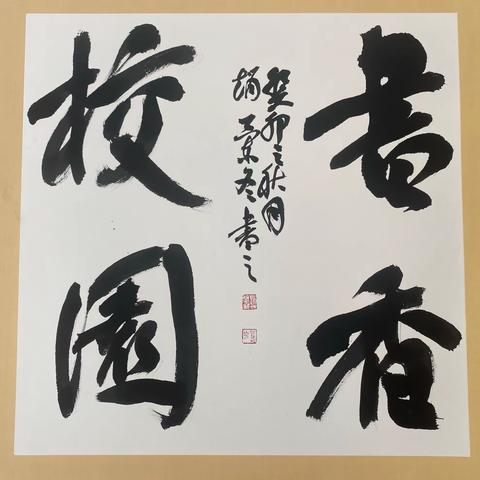 書香
校園
癸卯之秋月
趙冬書之